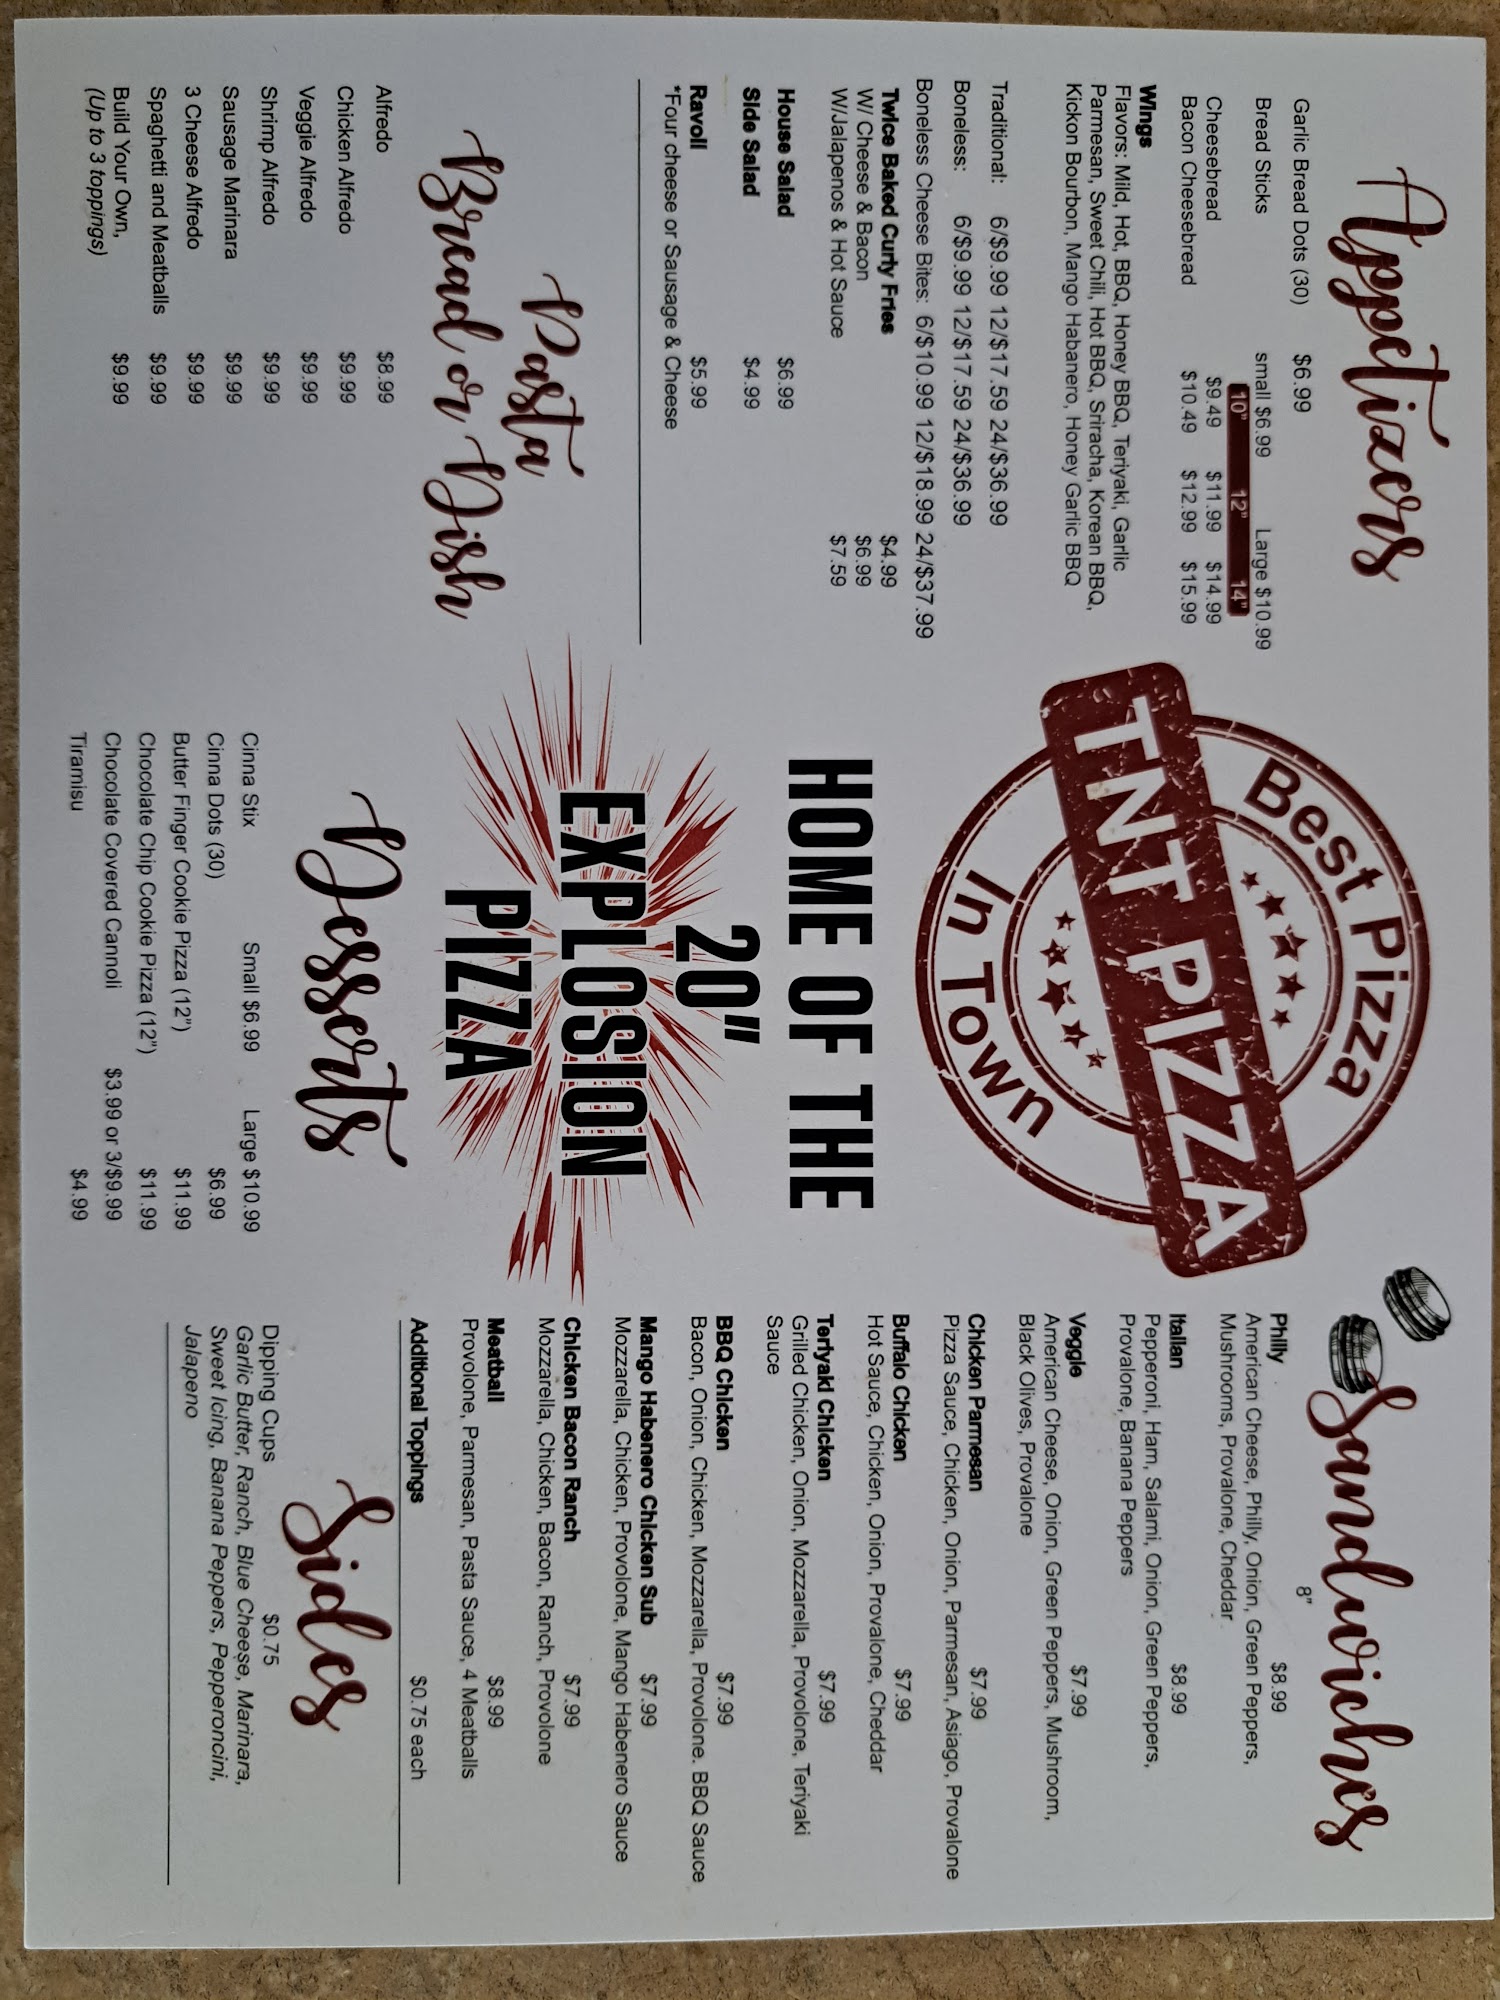 Appetizers
Garlic Bread Dots (30) $6.99
Bread Sticks small $6.99 Large $10.99
10" 12" 14"
Cheesebread $9.49 $11.99 $14.99
Bacon Cheesebread $10.49 $12.99 $15.99
Wings
Flavors: Mild, Hot, BBQ, Honey BBQ, Teriyaki, Garlic
Parmesan, Sweet Chili, Hot BBQ, Sriracha, Korean BBQ,
Kickon Bourbon, Mango Habanero, Honey Garlic BBQ
Traditional: 6/$9.99 12/$17.59 24/$36.99
Boneless: 6/$9.99 12/$17.59 24/$36.99
Boneless Cheese Bites: 6/$10.99 12/$18.99 24/$37.99
Twice Baked Curly Fries $4.99
W/ Cheese & Bacon $6.99
W/Jalapenos & Hot Sauce $7.59
House Salad $6.99
Side Salad $4.99
Ravoli $5.99
*Four cheese or Sausage & Cheese
Pasta
Bread or Dish
Alfredo $8.99
Chicken Alfredo $9.99
Veggie Alfredo $9.99
Shrimp Alfredo $9.99
Sausage Marinara $9.99
3 Cheese Alfredo $9.99
Spaghetti and Meatballs $9.99
Build Your Own, $9.99
(Up to 3 toppings)
Best Pizza
TNT PIZZA
In Town
HOME OF THE
20"
EXPLOSION
PIZZA
Desserts
Cinna Stix Small $6.99 Large $10.99
Cinna Dots (30) $6.99
Butter Finger Cookie Pizza (12") $11.99
Chocolate Chip Cookie Pizza (12") $11.99
Chocolate Covered Cannoli $3.99 or 3/$9.99
Tiramisu $4.99
Sandwiches
8"
Philly $8.99
American Cheese, Philly, Onion, Green Peppers,
Mushrooms, Provalone, Cheddar
Italian $8.99
Pepperoni, Ham, Salami, Onion, Green Peppers,
Provalone, Banana Peppers
Veggie $7.99
American Cheese, Onion, Green Peppers, Mushroom,
Black Olives, Provalone
Chicken Parmesan $7.99
Pizza Sauce, Chicken, Onion, Parmesan, Asiago, Provalone
Buffalo Chicken $7.99
Hot Sauce, Chicken, Onion, Provalone, Cheddar
Teriyaki Chicken $7.99
Grilled Chicken, Onion, Mozzarella, Provolone, Teriyaki
Sauce
BBQ Chicken $7.99
Bacon, Onion, Chicken, Mozzarella, Provolone. BBQ Sauce
Mango Habenero Chicken Sub $7.99
Mozzarella, Chicken, Provolone, Mango Habenero Sauce
Chicken Bacon Ranch $7.99
Mozzarella, Chicken, Bacon, Ranch, Provolone
Meatball $8.99
Provolone, Parmesan, Pasta Sauce, 4 Meatballs
Additional Toppings $0.75 each
Sides
Dipping Cups $0.75
Garlic Butter, Ranch, Blue Cheese, Marinara,
Sweet Icing, Banana Peppers, Pepperoncini,
Jalapeno